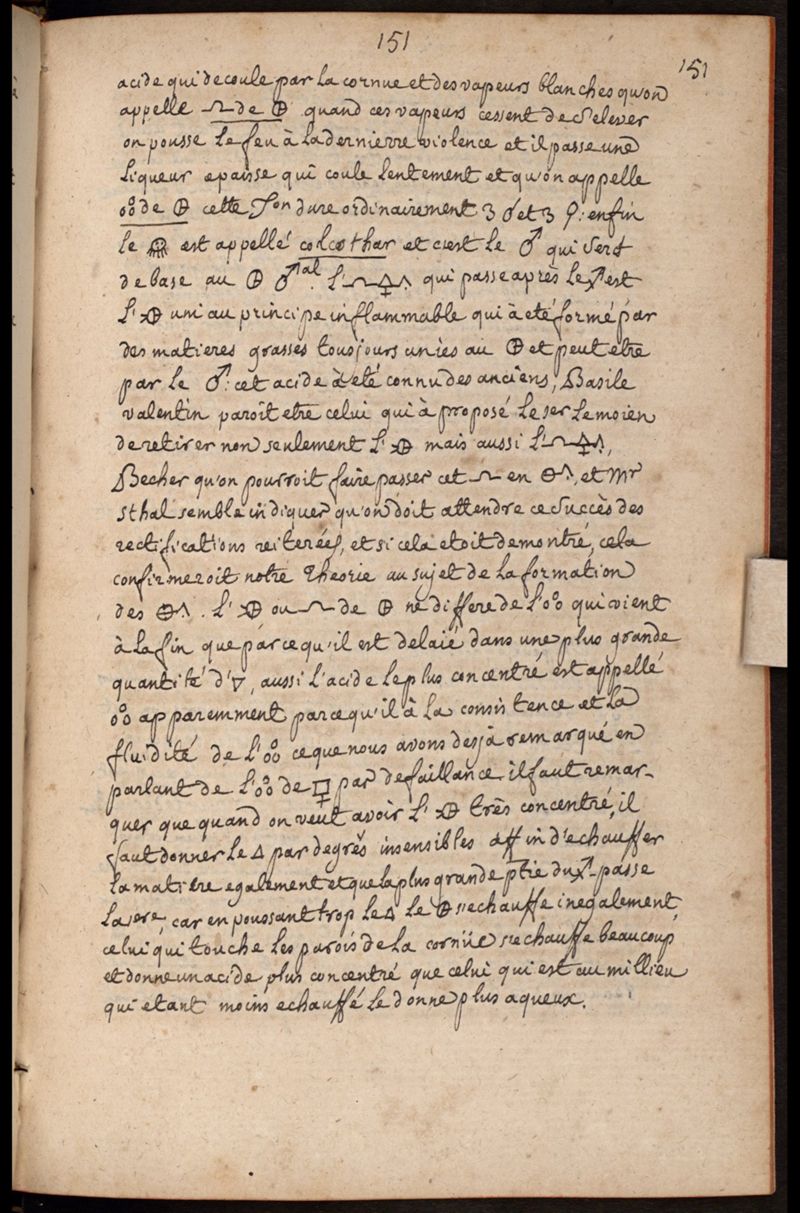 151
151
acide qui decoule par la cornue et des vapeurs blanches qu'on
appelle de 🜨 quand ces vapeurs cessent de s'elever
on pousse le feu à la derniere violence et il passe une
liqueur epaisse qui coule lentement et qu'on appelle
o°o de 🜨 cette dure ordinairement 3 et 3 enfin
le est appellé colcothar et c'est le ♂ qui sert
de base au 🜨 ♂al. L' 🜍 qui passe apres le est
L' uni au principe inflammable qui à eté formé par
des matieres grasses tousjours unies au 🜨 et peut etre
par le ♂: cet acide à eté connu des anciens, Basile
valentin paroit etre celui qui à proposé le 1er le moien
de retirer non seulement L' mais aussi L' 🜍,
Becher qu'on pourroit faire passer cet en, et Mr
sthal semble indiquer qu'on doit attendre ce succès des
rectifications reiterées, et si cela etoit demontré, cela
confirmeroit notre Theorie au sujet de la formation
des. L' ou de 🜨 ne differe de L'o°o qui vient
à la fin que parce qu'il est delaié dans une plus grande
quantité d'▽, aussi l'acide le plus concentré est appellé
o°o apparemment parce qu'il à la consistence et la
fluidité de L'o°o ce que nous avons desjà remarqué en
parlant de L'o°o de par defaillance. il faut remar-
quer que quand on veut avoir L' très concentré, il
faut donner le △ par degrés insensibles affin d'echauffer
la matiere egalement et que la plus grande ptie du passe
la 1ere, car en poussant trop le △ le 🜨 s'echauffe inegalement,
celui qui touche les parois de la cornüe s'echauffe beaucoup
et donne un acide plus concentré que celui qui est au millieu
qui etant moins echauffé le donne plus aqueux.